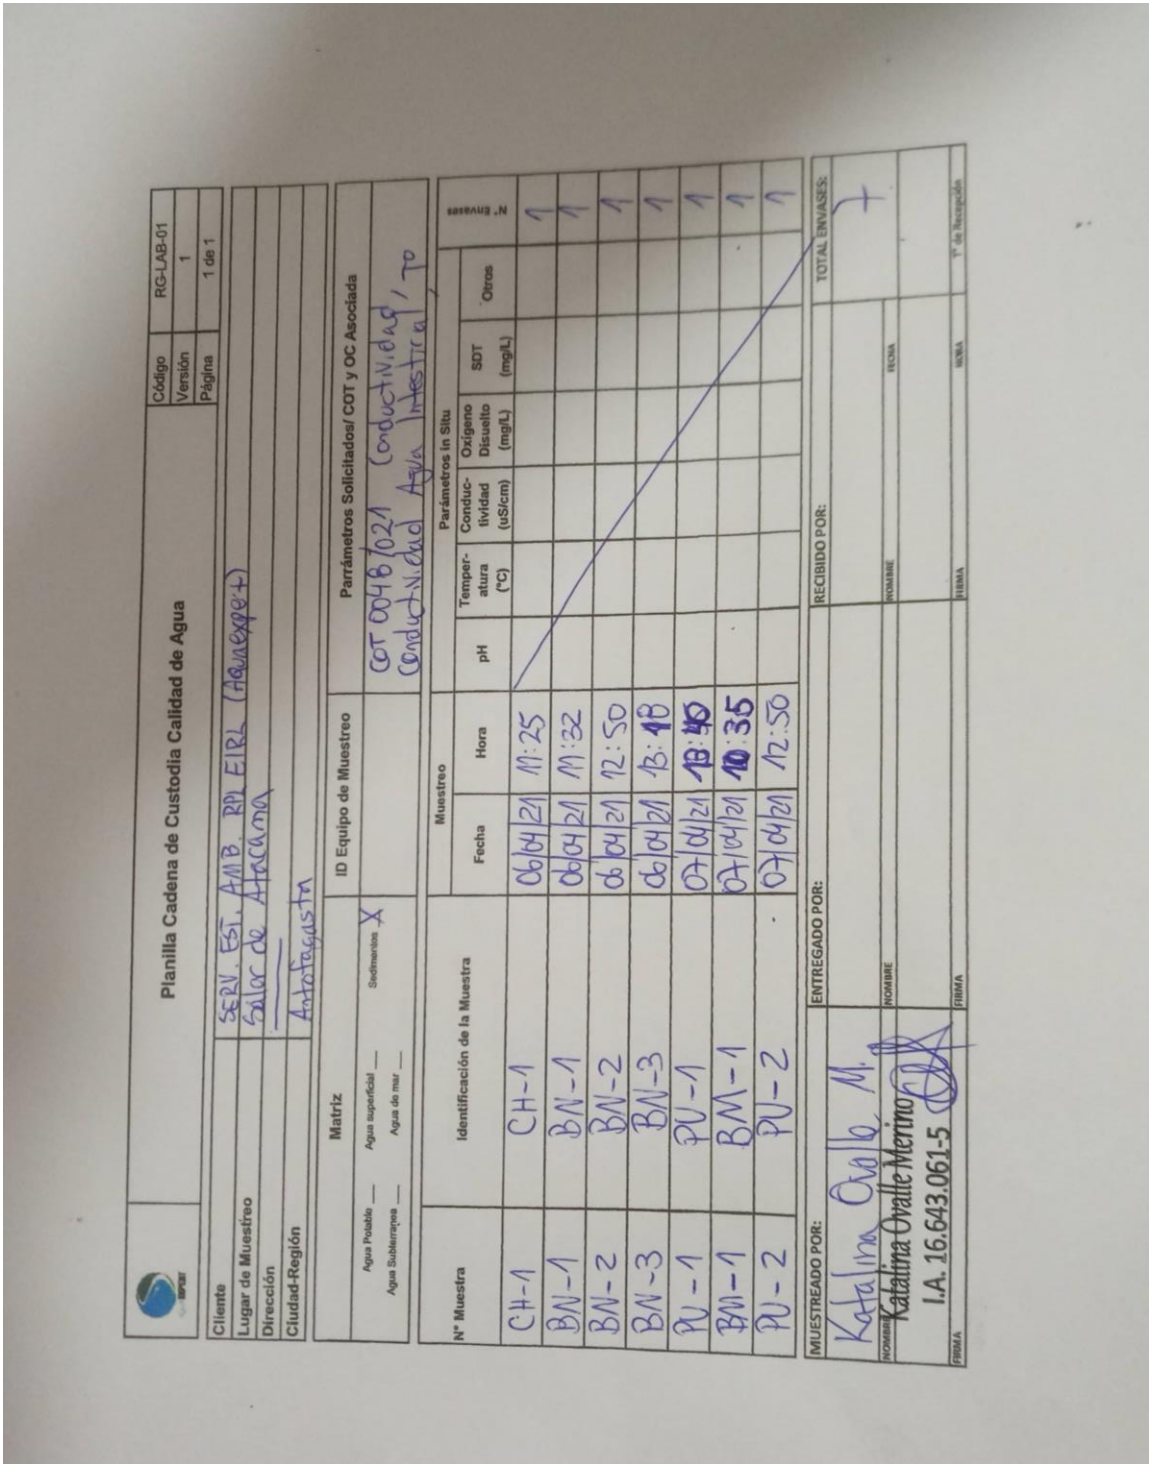 Planilla Cadena de Custodia Calidad de Agua
Código RG-LAB-01
Versión 1
Página 1 de 1
Cliente SERV. EST. AMB. RPL EIRL (Aquaexpert)
Lugar de Muestreo Salar de Atacama
Dirección
Ciudad-Región Antofagasta
Matriz ID Equipo de Muestreo Parrámetros Solicitados/ COT y OC Asociada
Agua Potable __ Agua superficial __ Sedimentos X
Agua Subterranea __ Agua de mar __
COT 004B/021 Conductividad,
Conductividad Agua Intesticial, TO
N° Muestra Identificación de la Muestra Muestreo Parámetros in Situ N° Envases
Fecha Hora pH Temper-atura (°C) Conduc-tividad (uS/cm) Oxígeno Disuelto (mg/L) SDT (mg/L) Otros
CH-1 CH-1 06/04/21 11:25 1
BN-1 BN-1 06/04/21 11:32 1
BN-2 BN-2 06/04/21 12:50 1
BN-3 BN-3 06/04/21 13:18 1
PU-1 PU-1 07/04/21 13:40 1
BM-1 BM-1 07/04/21 10:35 1
PU-2 PU-2 07/04/21 12:50 1
MUESTREADO POR: ENTREGADO POR: RECIBIDO POR: TOTAL ENVASES:
Katalina Ovalle M. 7
NOMBRE NOMBRE NOMBRE FECHA
Katalina Ovalle Merino
I.A. 16.643.061-5
FIRMA FIRMA FIRMA HORA T° de Recepción